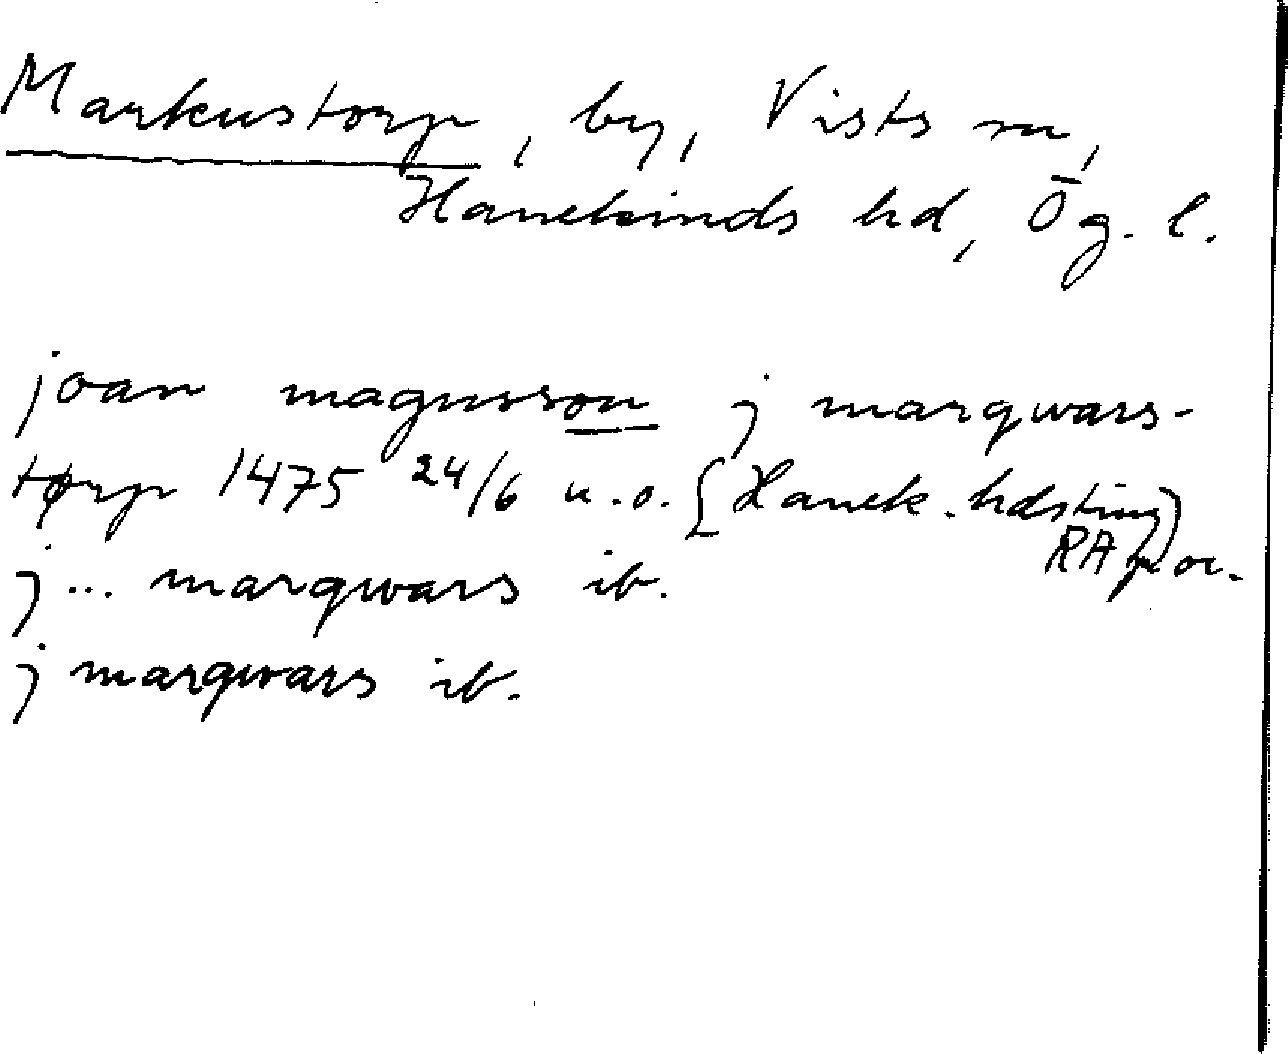 Markustorp, by, Vists sn,
Hanekinds hd, Ög. l.
joan magnusson j marqwars-
tørp 1475 24/6 u.o. (Hanek. hdsting)
RA por.
j... marqwars ib.
j marqwars ib.